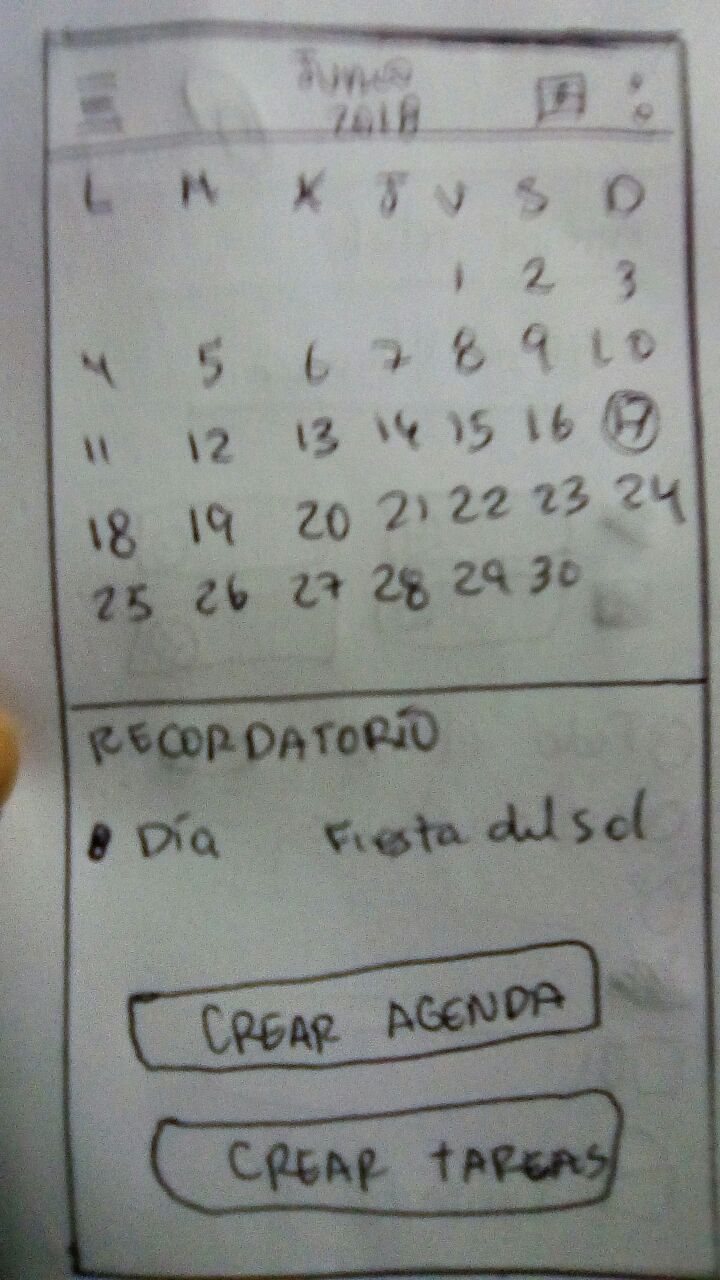 Junio
2018
L M X J V S D
1 2 3
4 5 6 7 8 9 10
11 12 13 14 15 16 17
18 19 20 21 22 23 24
25 26 27 28 29 30
RECORDATORIO
Día Fiesta del sol
CREAR AGENDA
CREAR TAREAS